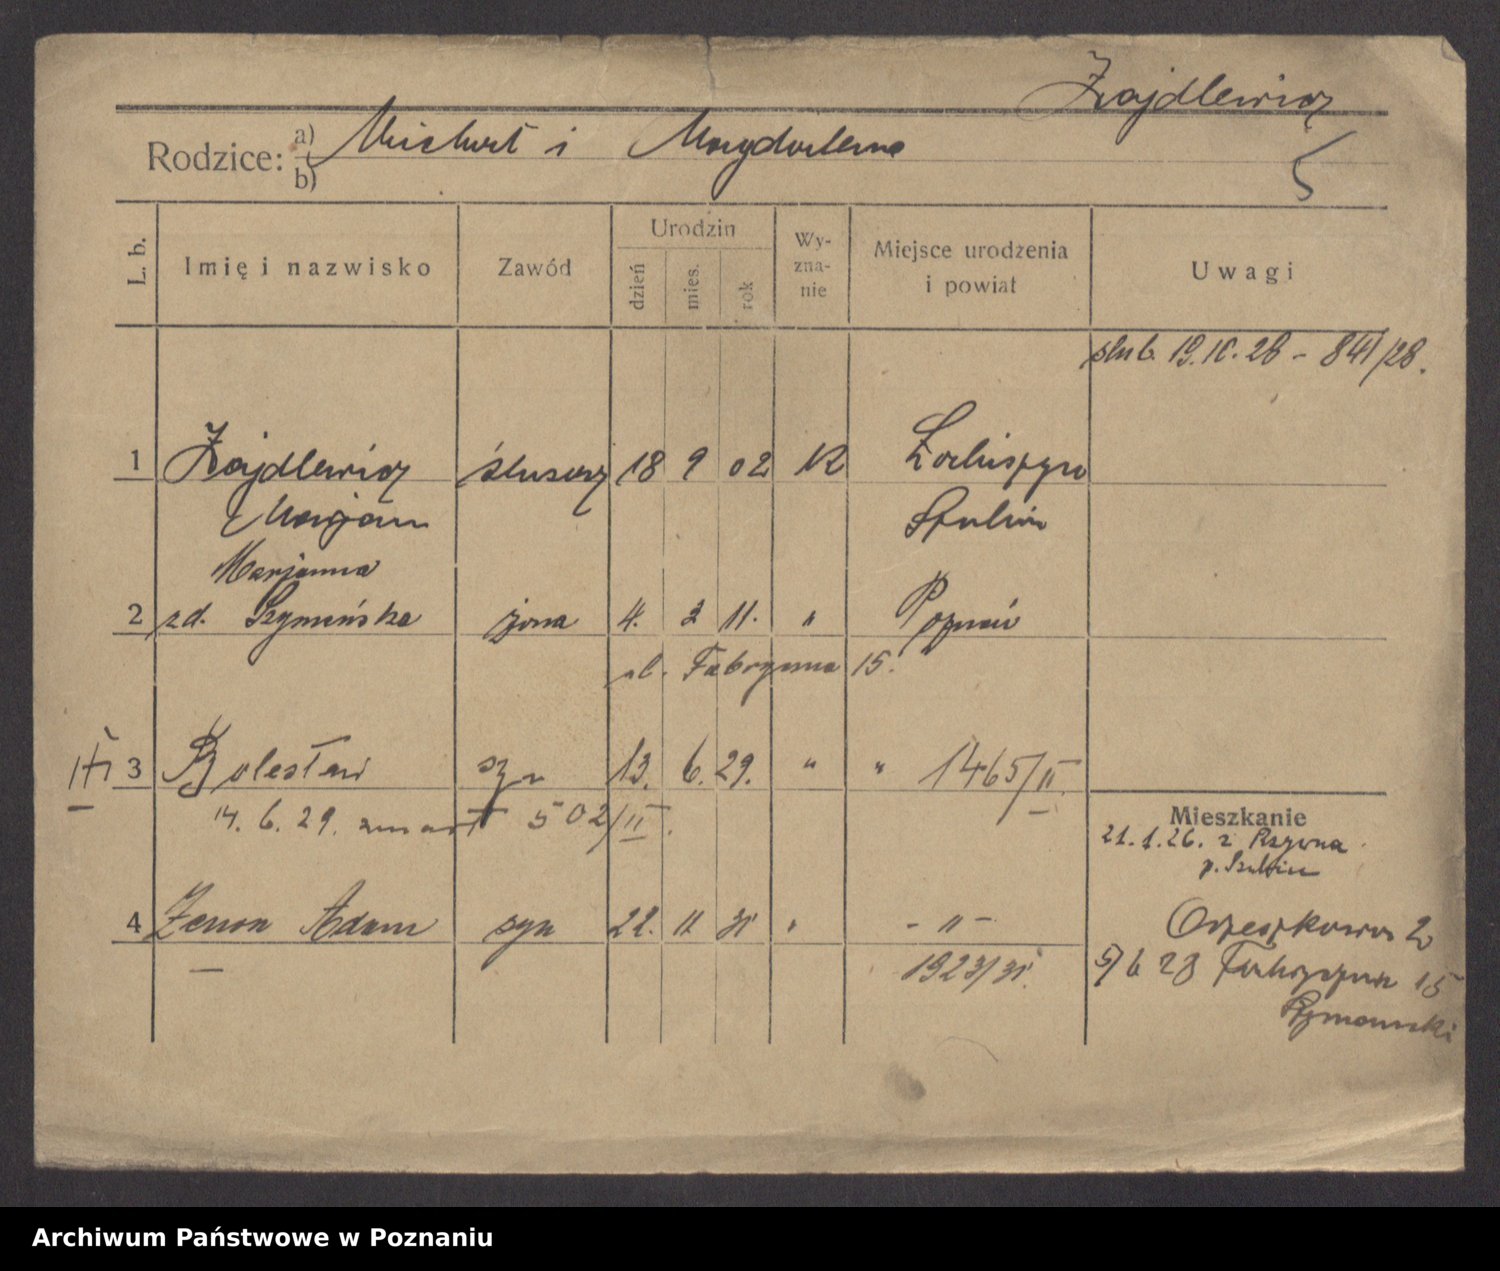 Zajdlewicz
Rodzice: a) Michał i Magdalena
b)
5
L. b. Imię i nazwisko Zawód Urodzin dzień mies. rok Wy-zna-nie Miejsce urodzenia i powiat Uwagi
ślub. 19. 28 - 841/28.
1 Zajdlewicz ślusarz 18 9 02 K
Marjan Szubin
Marjanna
2 zd. Szymińska żona 4. 2 11. " Poznań
ul. Fabryczna 15.
3 Bolesław syn 13. 6. 29. " " 1465/II.
14. 6. 29. zmarł 502/II.
Mieszkanie
21.1.26. z
p. Szubin
4 Zenon Adam syn 22. 11 31 " - " -
Orzeszkowa 2
1923/31.
5/6 28 Fabryczna 15